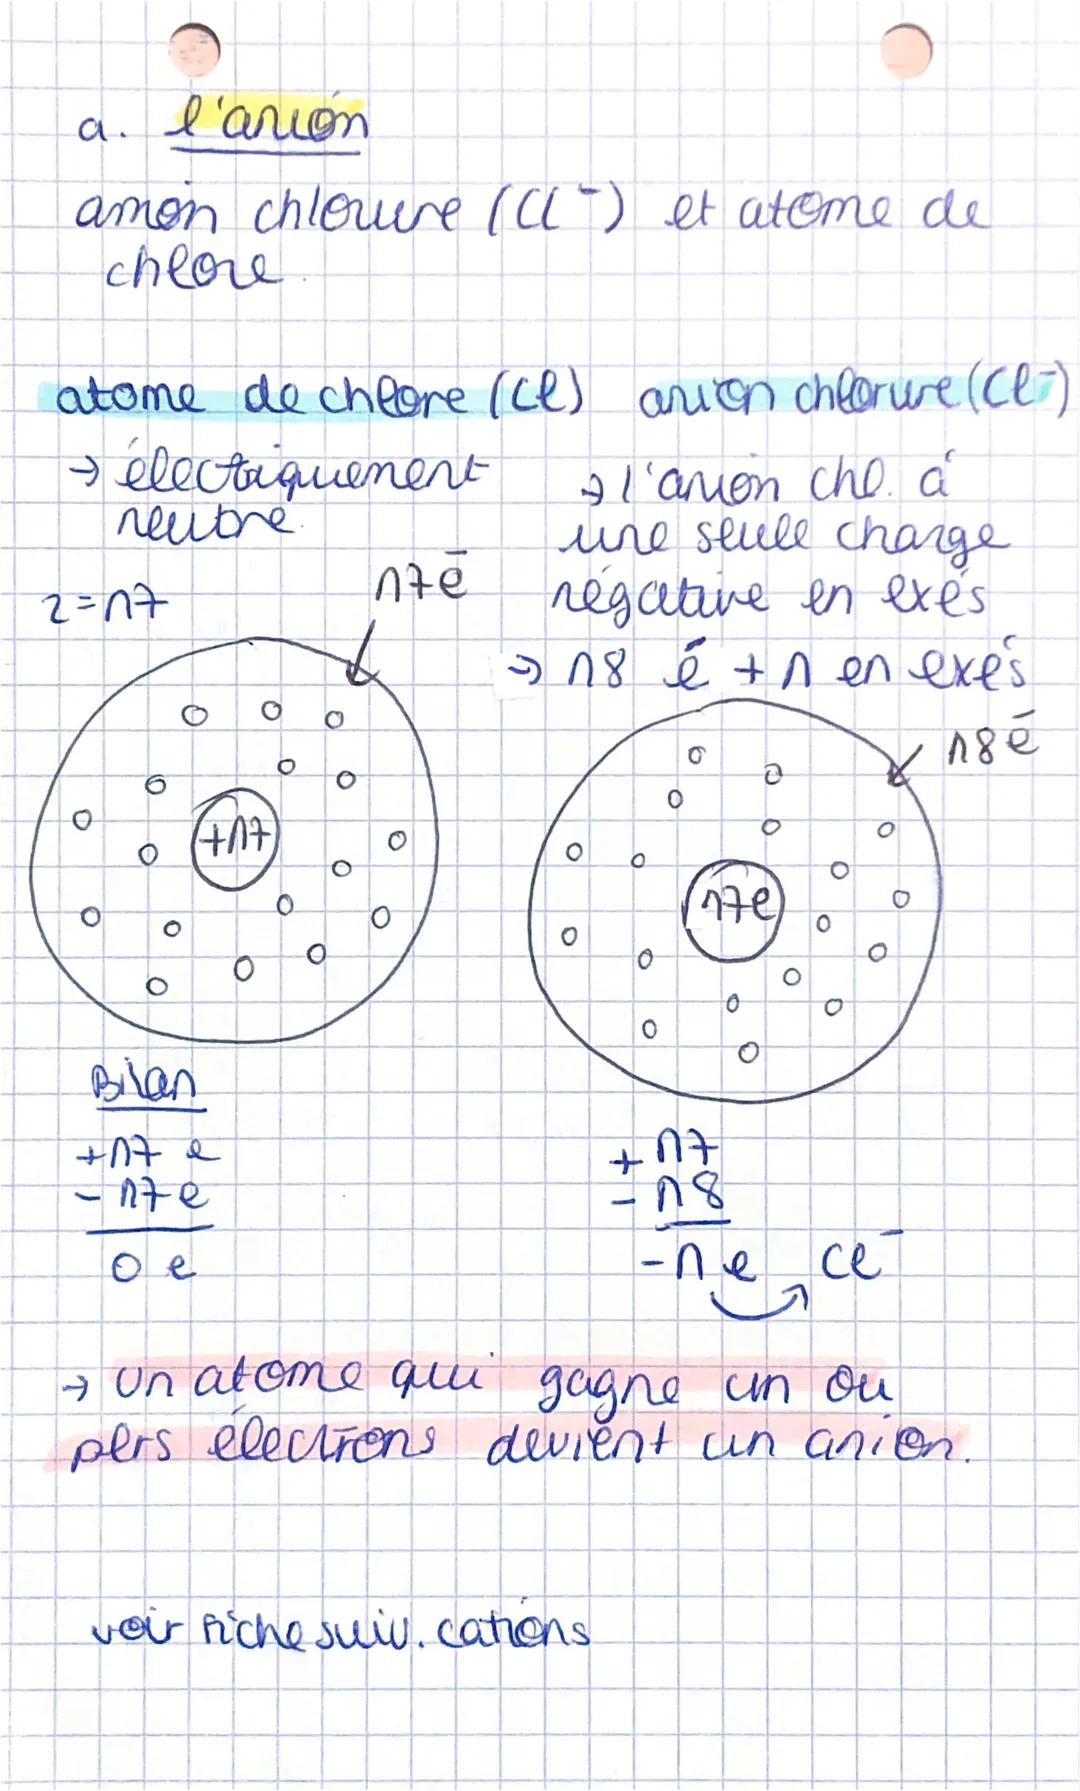 a. l'anion
anion chlorure (Cl⁻) et atome de
chlore.
atome de chlore (Cl)
→ électiquement
neutre.
z=17
17 e⁻
+17
Bilan
+17 e
- 17 e
0 e
anion chlorure (Cl⁻)
→ l'anion chl. à
une seule charge
négative en exés
→ 18 é + 1 en exés
18 e⁻
17e
+ 17
- 18
-1 e Cl⁻
→ un atome qui gagne un ou
plrs électrons devient un anion.
voir fiche suiv. cations